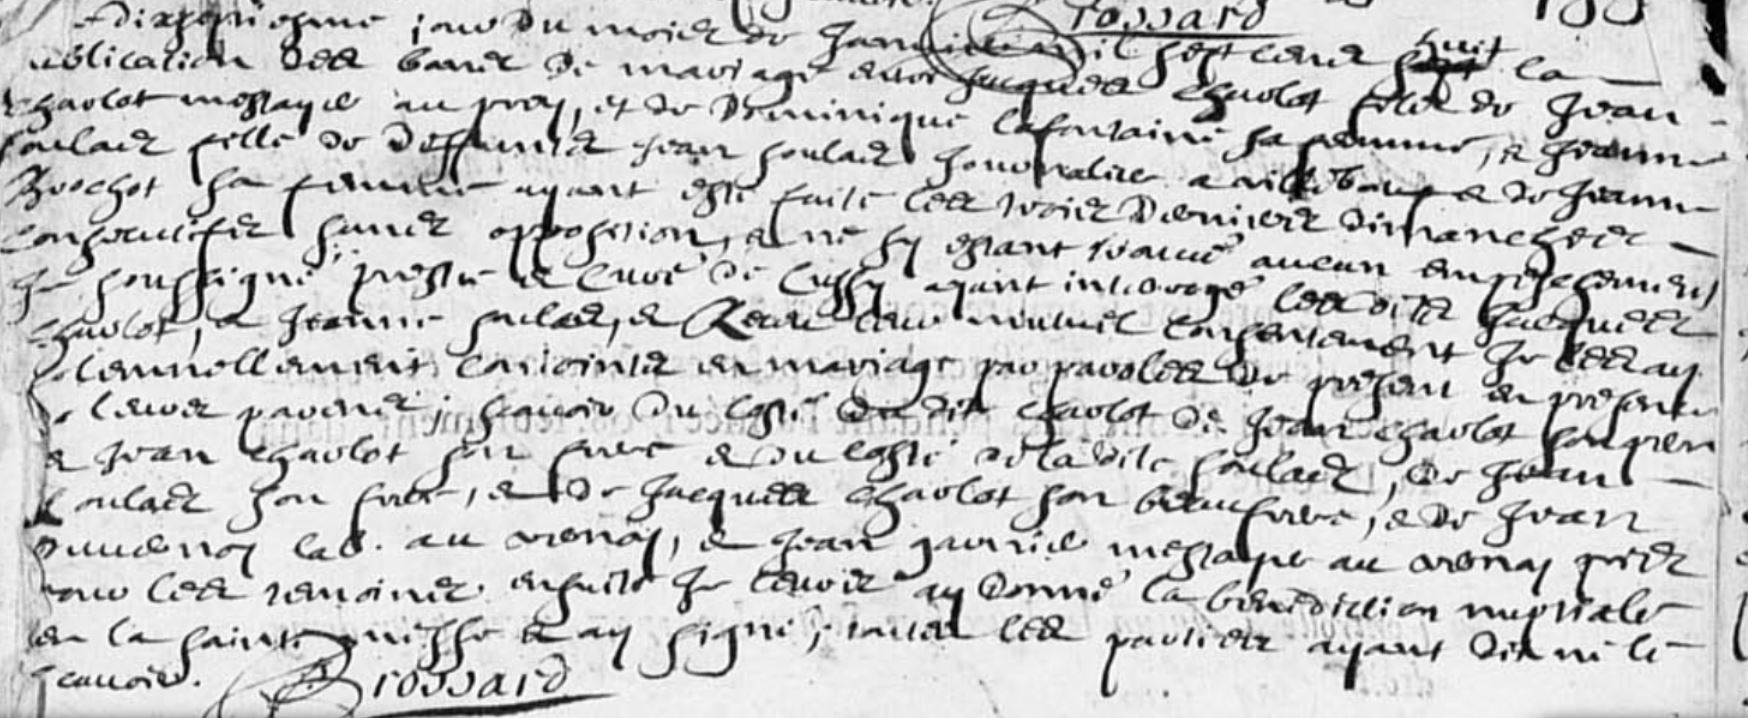 Brossard
dixhuitiesme jour du mois de Janvier mil sept cents huit la
publication des bancs de mariage entre Jacques Charlot fils de Jean
Charlot mestayé au prey, et de Dominique Lafontaine sa femme, & Jeanne
Soulact fille de deffunct Jean Soulact & de Jeanne
Brochot sa femme ayant esté faite les trois derniers dimanches
consecutifs sans opposition, & ne sy estant trouvé aucun empeschement
Je soussigné prestre & curé de Cussy ayant interrogé lesdits Jacques
Charlot, & Jeanne Soulact, & Receu leur mutuel consentement Je les ay
solennellement conjoints en mariage par paroles de present en presence
de leurs parents; sçavoir du costé dudit Charlot de Jean Charlot son pere
& Jean Charlot son frere & du costé de ladite Soulact, de Jean
Soulact son frere, & de Jacques Charlot son beaufrere, & de Jean
lab. au vernoy, & Jean mestayer au vernoy priés
pour les temoines. ensuite Je leurs ay donné la benediction nuptiale
en la sainte messe & ay signé; toutes les parties ayant dit ne le
scavoir. Brossard